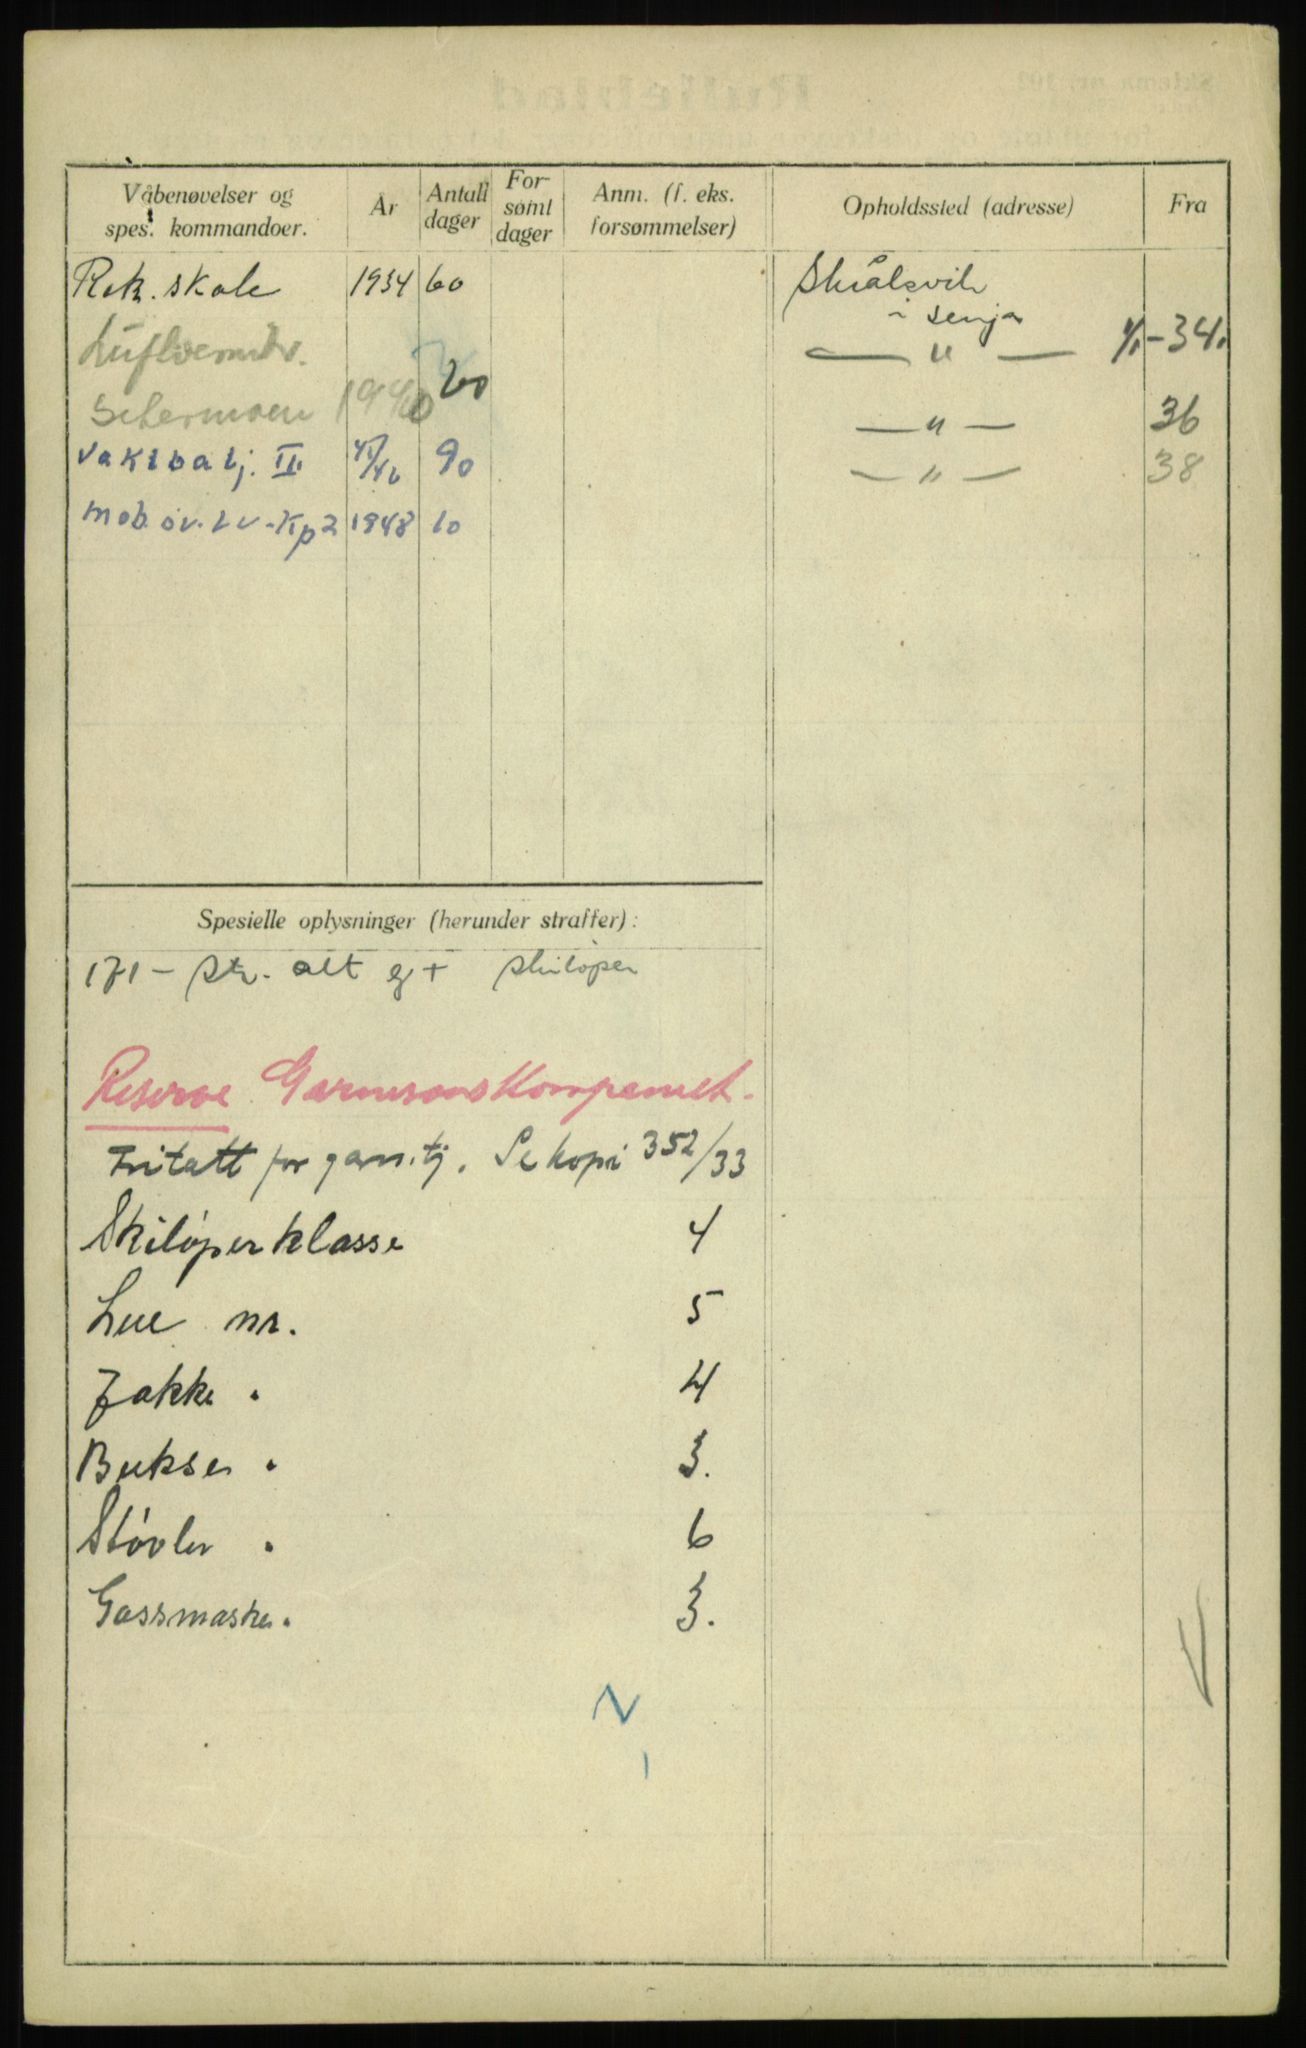 Våbenøvelser og spes. kommandoer. År Antall dager For- sømt dager Anm. (f. eks. forsømmelser) Opholdssted (adresse) Fra
Rek. skole 1934 60
Luftvernavd. Setermoen 1940 20
Vaktbatj. II. 45/46 90
Mob. øv. Lv-Kp 2 1948 10
Skrålsvik
i Senja
— " — 1/1-34.
— " — 36
— " — 38
Spesielle oplysninger (herunder straffer):
171 - str. alt gt skiløper
Reserve Garnisonskompaniet.
Fritatt for garn.tj. Se kopi 352/33
Skiløperklasse 4
Lue nr. 5
Jakke " 4
Bukse " 3.
Støvler " 6
Gassmaske " 3.